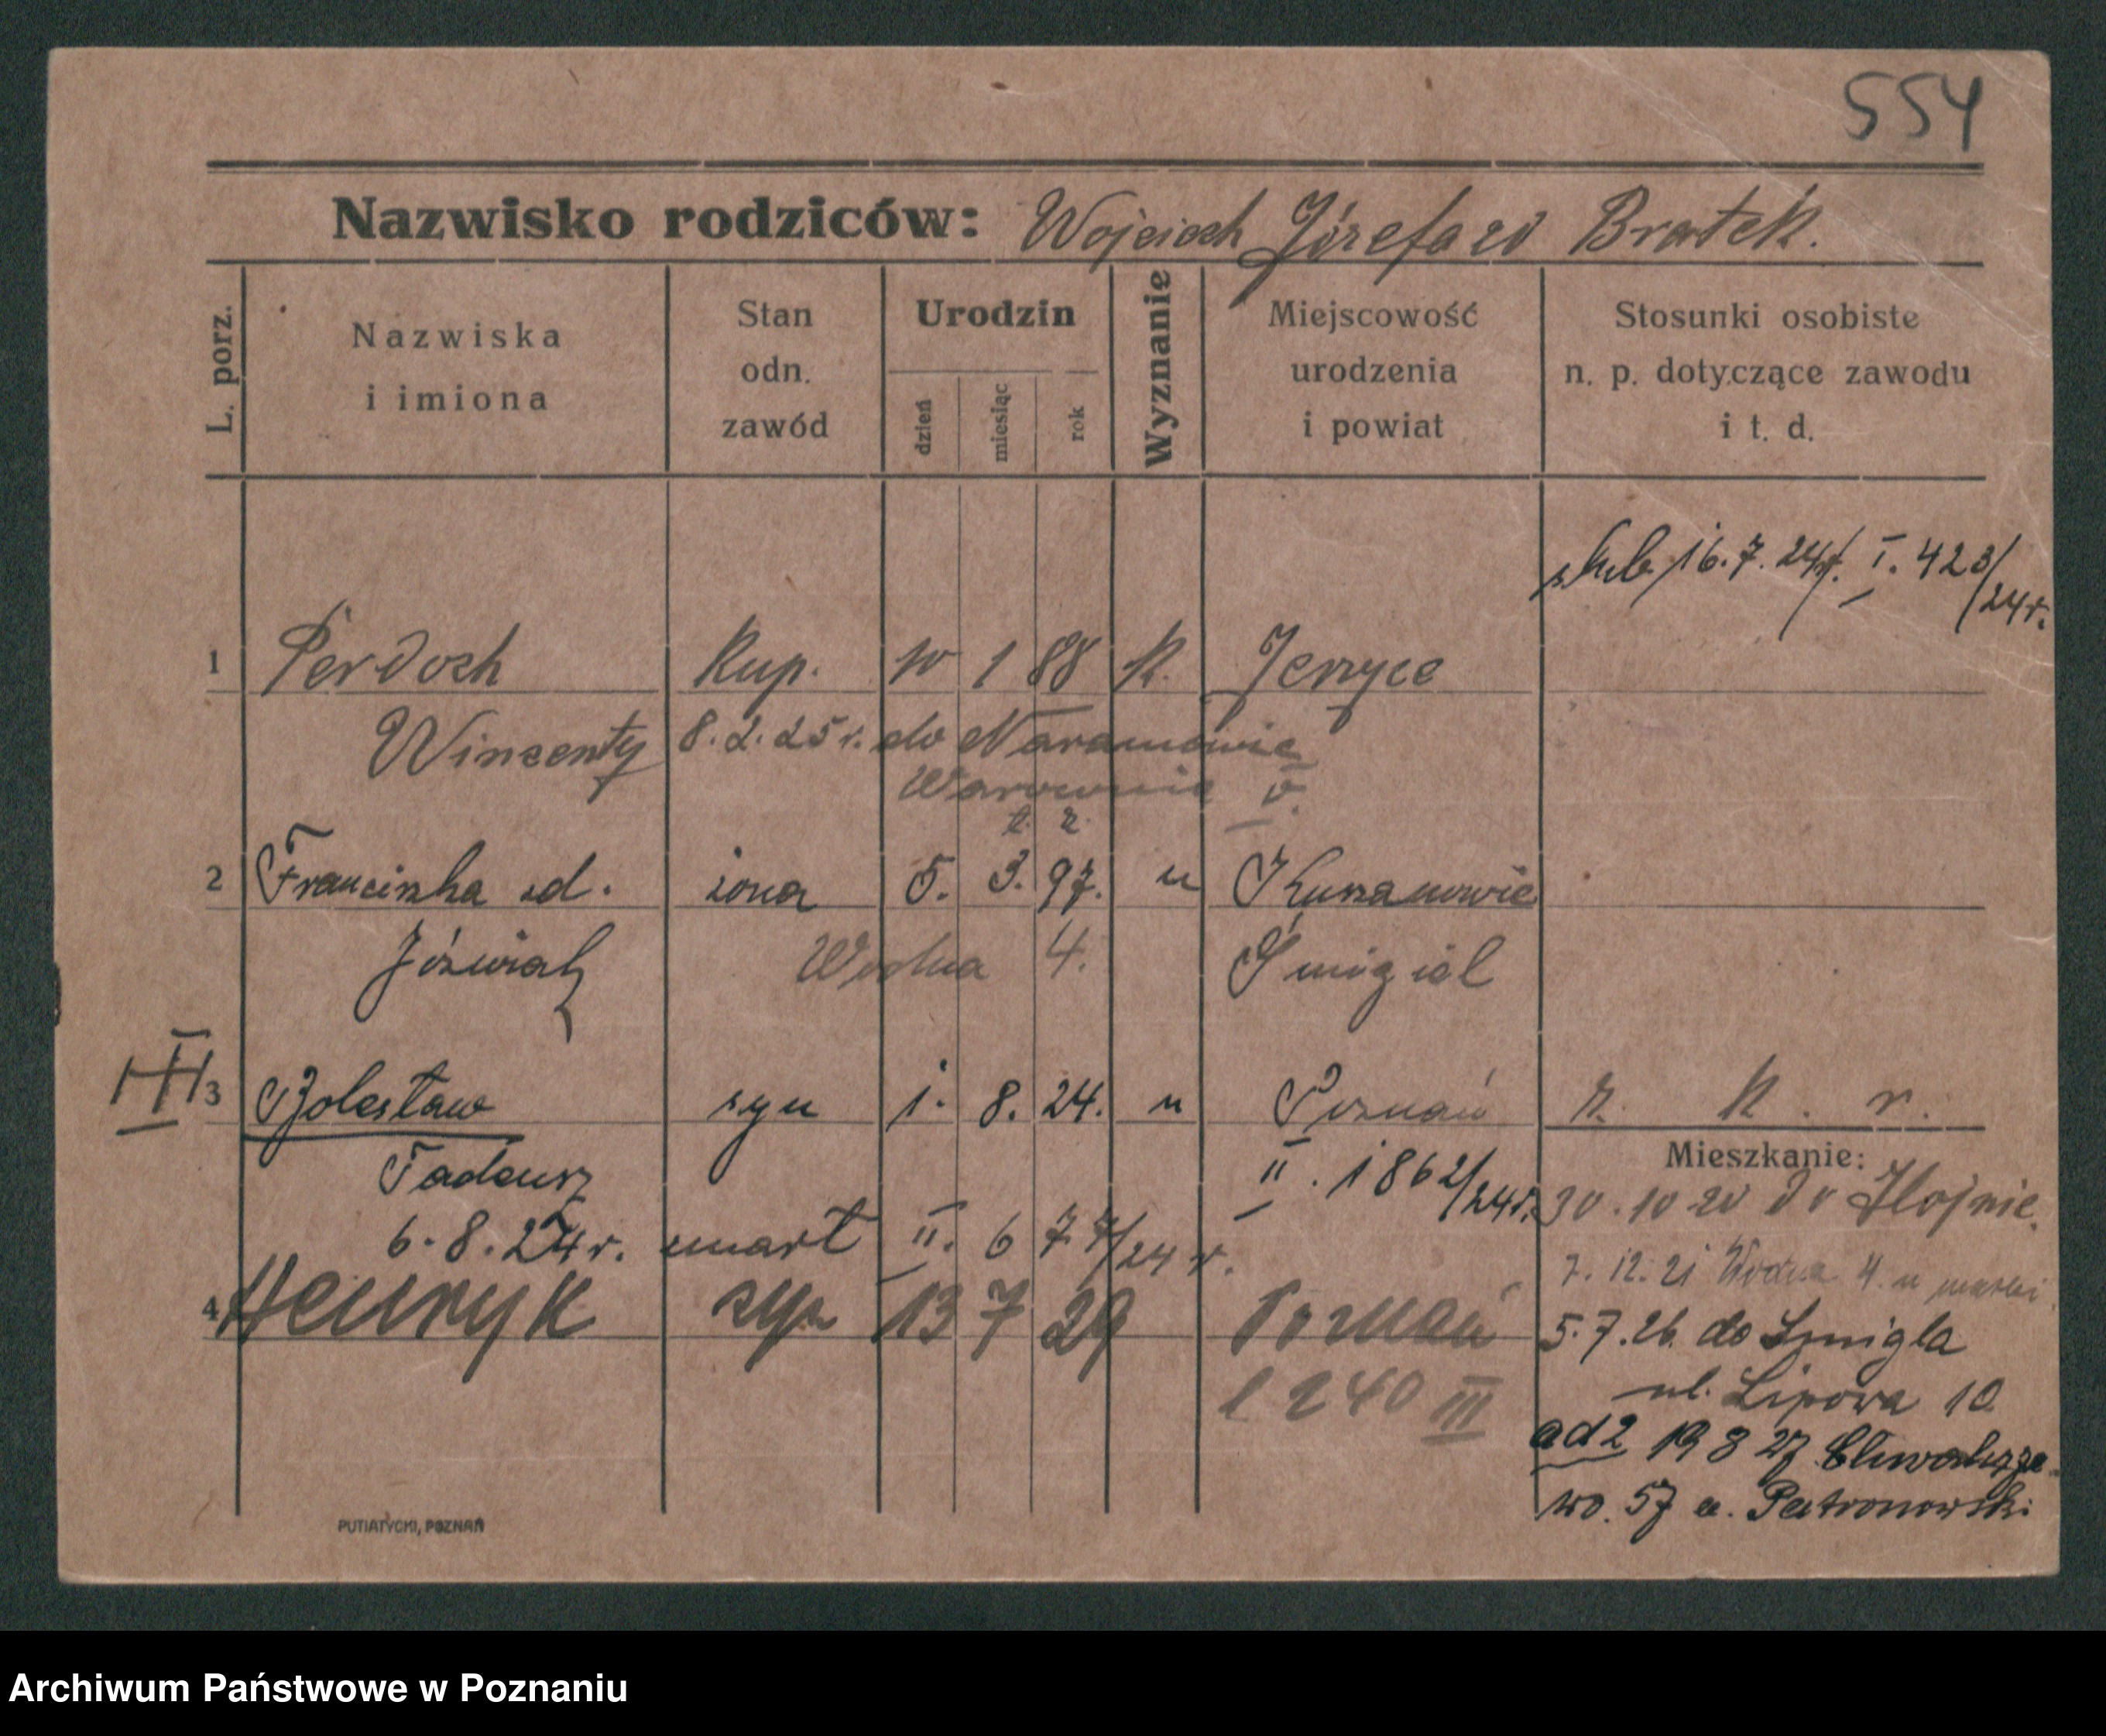 554
Nazwisko rodziców: Wojciech Józefa zd Bratek.
L. porz.
Nazwiska i imiona
Stan odn. zawód
Urodzin
dzień
miesiąc
rok
Wyznanie
Miejscowość urodzenia i powiat
Stosunki osobiste n. p. dotyczące zawodu i t. d.
ślub 16.7.24r. I. 423/24r.
1 Perdoch Kup. 10 1 88 k. Jerzyce
Wincenty 8.2.25 r. do Naramowic
V.
2 Franciszka zd. żona 5. 3. 97. u Kuszanowie
Jóźwiak Wodna 4. Śmigiel
III
3 Bolesław syn 1. 8. 24. u Poznań k. r.
Tadeusz II. 1862/24r.
Mieszkanie:
30.10 20
6.8.24r. zmarł II. 6 77/24 r.
7.12.21 Wodna 4. u matki
4 Henryk syn 13 7 29 Poznań
5.7.26. do Śmigla
ul. Lipowa 10
l 240 III
ad 2 19 8 27 Chwaliszewo. 57 u. Patronowski
PUTIATYCKI, POZNAŃ
Archiwum Państwowe w Poznaniu